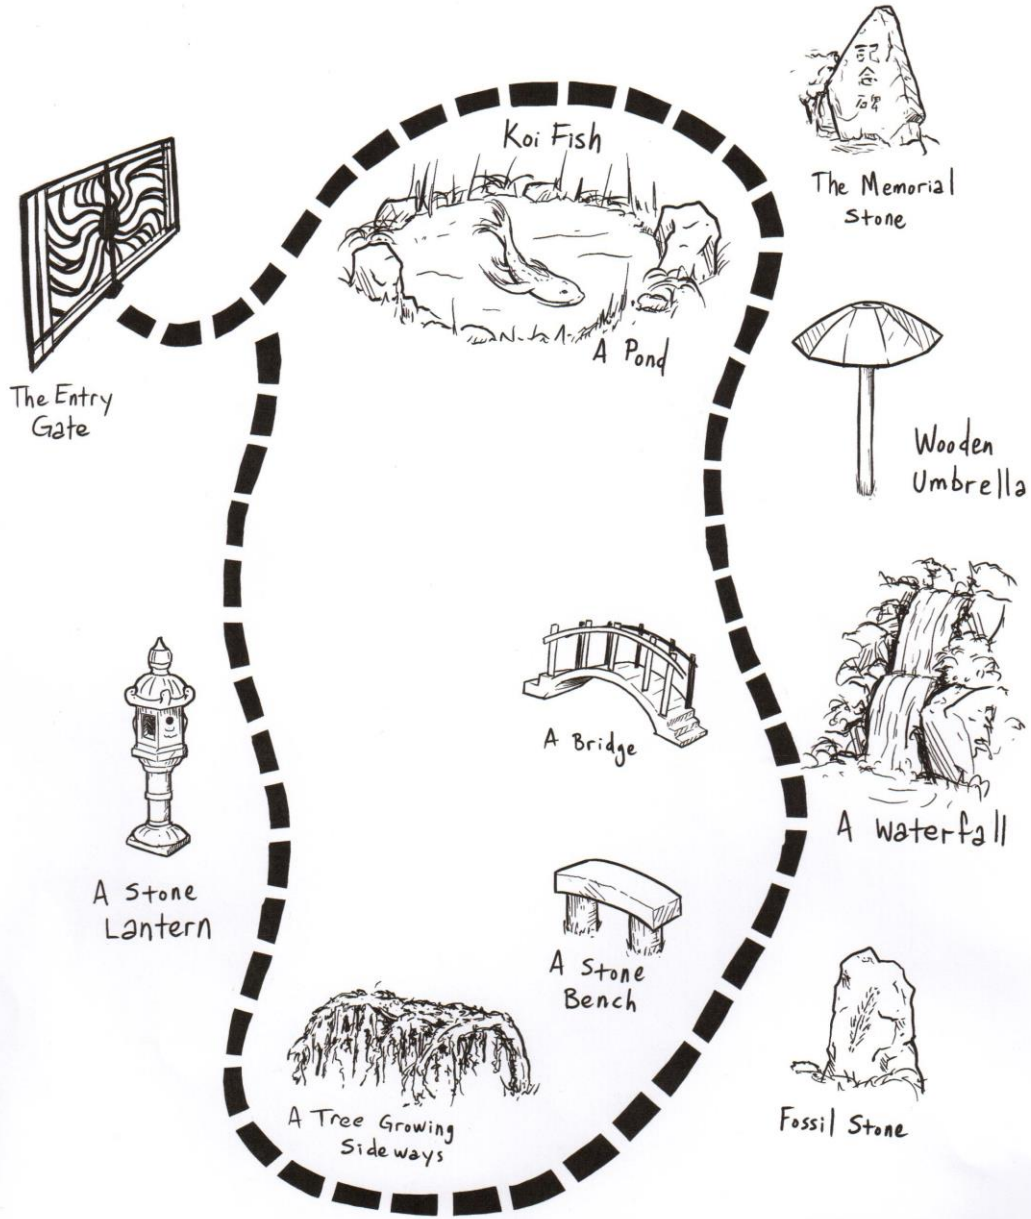 記
念
碑
The Memorial
Stone
Koi Fish
A Pond
The Entry
Gate
Wooden
Umbrella
A Bridge
A Waterfall
A Stone
Lantern
A Stone
Bench
A Tree Growing
Sideways
Fossil Stone